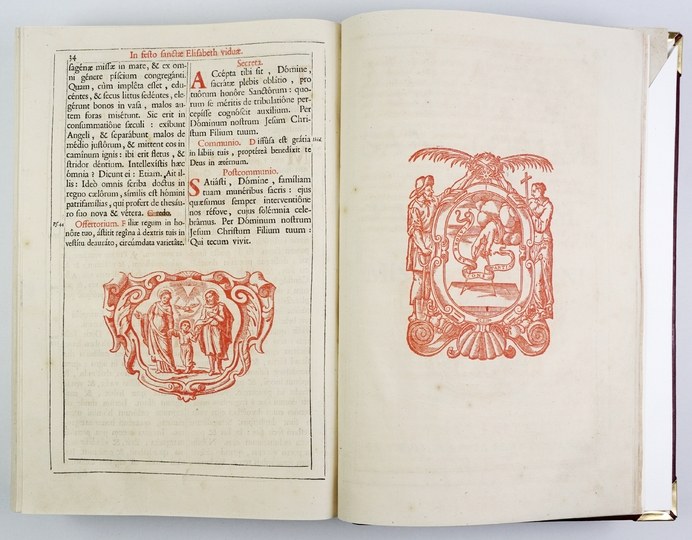 34
In festo sanctæ Elisabeth viduæ.
sagénæ missæ in mare, & ex om-
ni génere píscium congreganti.
Quam, cùm impléta esset, edu-
céntes, & secus littus sedéntes, ele-
gérunt bonos in vasa, malos au-
tem foras misérunt. Sic erit in
consummatióne sǽculi : exíbunt
Angeli, & separábunt malos de
médio justórum, & mittent eos in
camínum ignis : ibi erit fletus, &
stridor déntium. Intellexístis hæc
ómnia ? Dicunt ei : Etiam. Ait il-
lis : Ideò omnis scriba doctus in
regno cælórum, símilis est hómini
patrifamílias, qui profert de thesáu-
ro suo nova & vétera. Credo.
Offertorium. Fíliæ regum in ho-
nóre tuo, ástitit regína à dextris tuis in
vestítu deauráto, circúmdata varietáte.
Secreta.
ACcépta tibi sit, Dómine,
sacrátæ plebis oblátio, pro
tuórum honóre Sanctórum : quo-
rum se méritis de tribulatióne per-
cepísse cognóscit auxílium. Per
Dóminum nostrum Jesum Chri-
stum Fílium tuum.
Communio. Diffúsa est grátia
in lábiis tuis, proptéreà benedíxit te
Deus in ætérnum.
Postcommunio.
SAtiásti, Dómine, famíliam
tuam munéribus sacris : ejus
quǽsumus semper interventióne
nos réfove, cujus solémnia cele-
brámus. Per Dóminum nostrum
Jesum Christum Fílium tuum :
Qui tecum vivit.